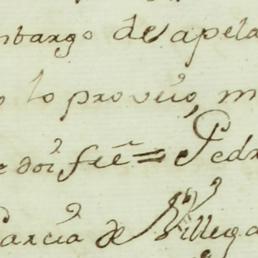 mbargo de apela
lo proveió, m
e doi feê = Pedr
Garcia de Villega